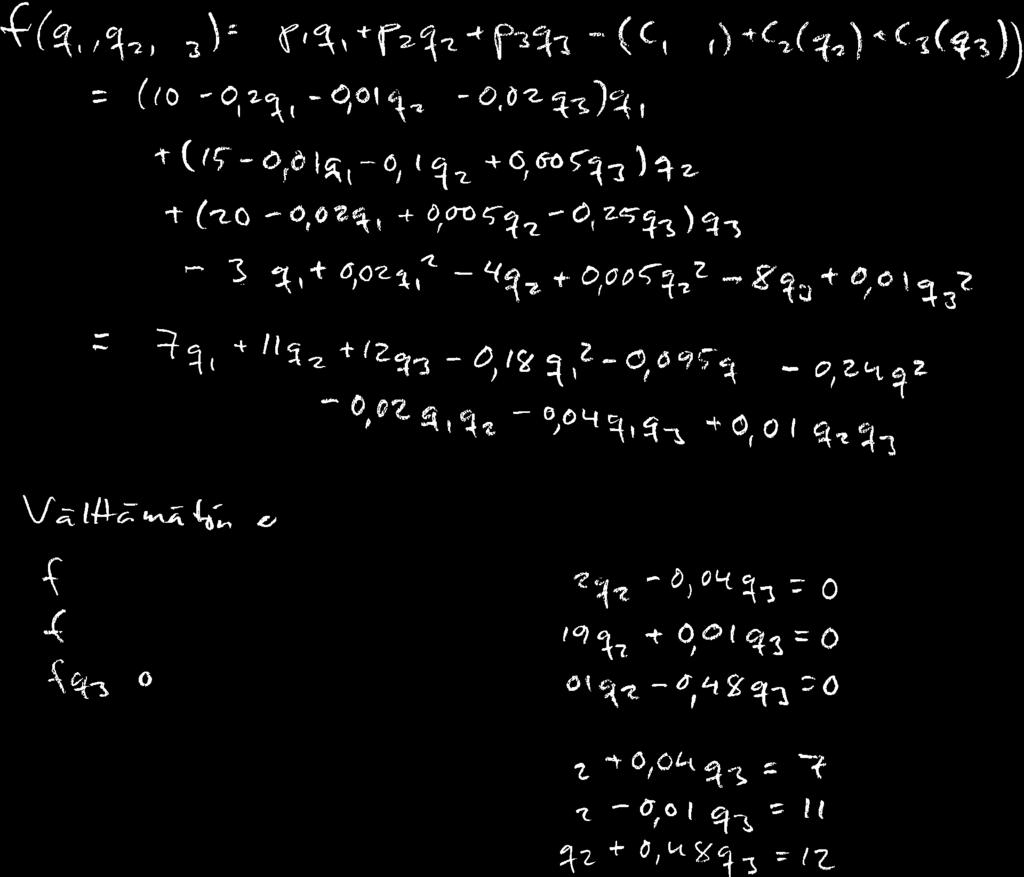 f(q₁,q₂, ₃)= p₁q₁+p₂q₂+p₃q₃-(C₁ ₁)+C₂(q₂)+C₃(q₃))
= (10-0,2q₁-0,01q₂ -0,02q₃)q₁
+(15-0,01q₁-0,1q₂+0,005q₃)q₂
+(20-0,02q₁+0,005q₂-0,25q₃)q₃
-3 q₁+0,02q₁²-4q₂+0,005q₂²-8q₃+0,01q₃²
= 7q₁+11q₂+12q₃-0,18q₁²-0,095q -0,24q²
-0,02q₁q₂-0,04q₁q₃+0,01q₂q₃
Välttämätön e
f 2q₂-0,04q₃=0
f 19q₂+0,01q₃=0
fq₃ 0 01q₂-0,48q₃=0
₂+0,04q₃=7
₂-0,01q₃=11
q₂+0,48q₃=12